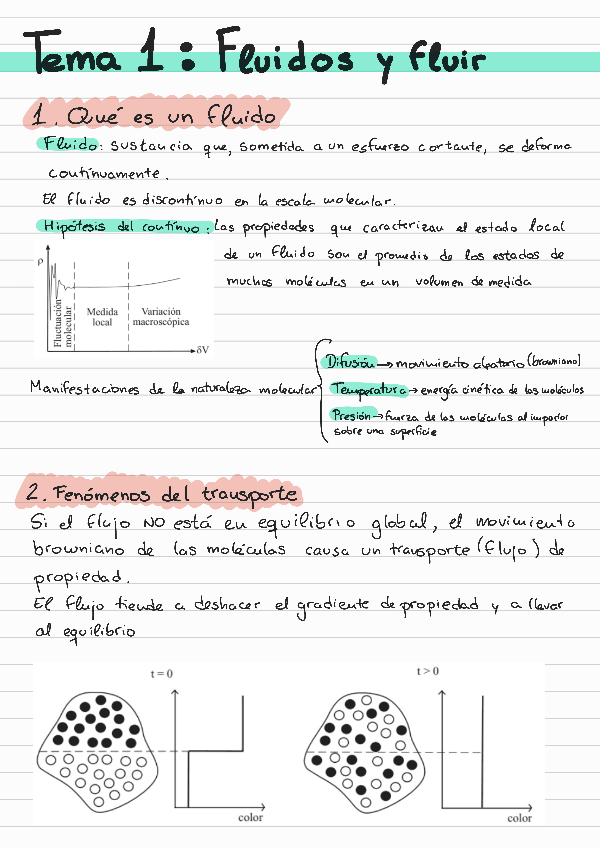 Tema 1: Fluidos y fluir
1. Qué es un fluido
Fluido: sustancia que, sometida a un esfuerzo cortante, se deforma
continuamente.
El fluido es discontinuo en la escala molecular.
Hipótesis del continuo: Las propiedades que caracterizan el estado local
de un fluido son el promedio de los estados de
muchas moléculas en un volumen de medida
ρ
Fluctuación
molecular
Medida
local
Variación
macroscópica
δV
Manifestaciones de la naturaleza molecular
Difusión → movimiento aleatorio (browniano)
Temperatura → energía cinética de las moléculas
Presión → fuerza de las moléculas al impactar
sobre una superficie
2. Fenómenos del transporte
Si el flujo NO está en equilibrio global, el movimiento
browniano de las moléculas causa un transporte (flujo) de
propiedad.
El flujo tiende a deshacer el gradiente de propiedad y a llevar
al equilibrio
t = 0
color
t > 0
color